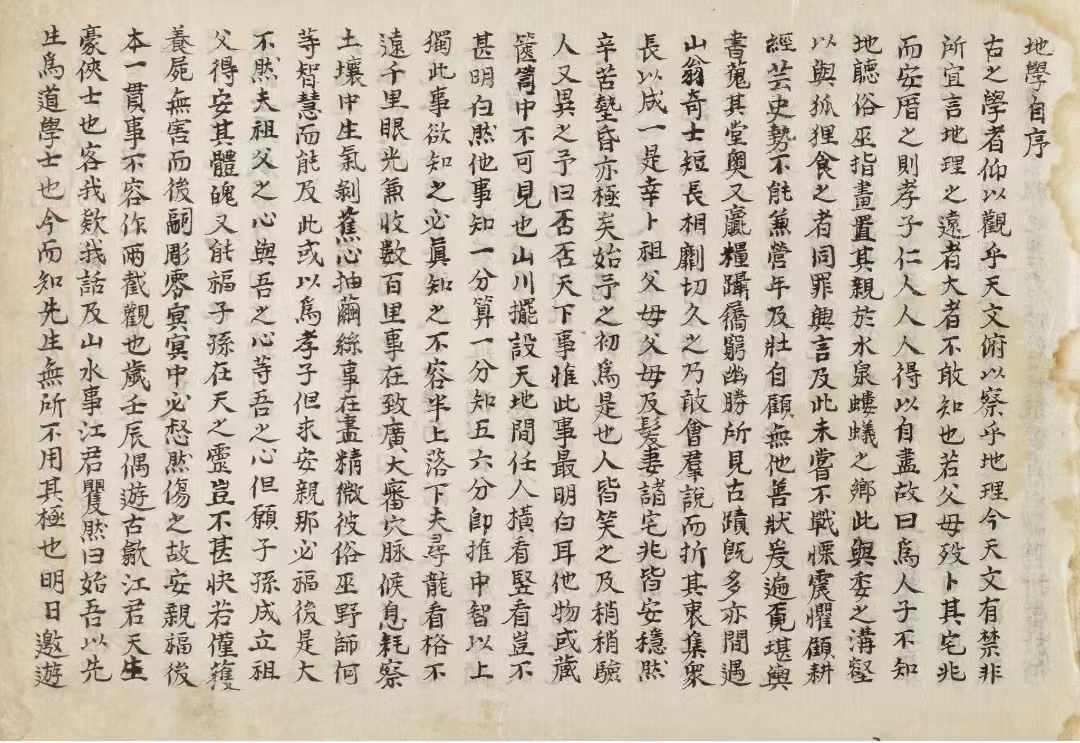 地學自序
古之學者仰以觀乎天文俯以察乎地理今天文有禁非
所宜言地理之遠者大者不敢知也若父母歿卜其宅兆
而安厝之則孝子仁人人人得以自盡故曰爲人子不知
地聽俗巫指畫置其親於水泉螻蟻之鄉此與委之溝壑
以與狐狸食之者同罪興言及此未嘗不戰慄震懼顧耕
經芸史勢不能兼營年及壯自顧無他善狀爰遍覓堪輿
書蒐其堂奧又齎糧躡屩窮幽勝所見古蹟旣多亦間遇
山翁奇士短長相劘切久之乃敢會羣說而折其衷集衆
長以成一是幸卜祖父母父母及髮妻諸宅兆皆安穩然
辛苦墊昏亦極矣始予之初爲是也人皆笑之及稍稍驗
人又異之予曰否否天下事惟此事最明白耳他物或藏
篋笥中不可見也山川擺設天地間任人橫看豎看豈不
甚明白然他事知一分算一分知五六分卽推中智以上
獨此事欲知之必眞知之不容半上落下夫尋龍看格不
遠千里眼光兼收數百里事在致廣大審穴脉候息耗察
土壤中生氣剝蕉心抽繭絲事在盡精微彼俗巫野師何
等智慧而能及此或以爲孝子但求安親那必福後是大
不然夫祖父之心與吾之心等吾之心但願子孫成立祖
父得安其體魄又能福子孫在天之靈豈不甚快若僅獲
養屍無害而後嗣彫零冥冥中必惄然傷之故安親福後
本一貫事不容作兩截觀也歲壬辰偶遊古歙江君天生
豪俠士也客我欵我話及山水事江君瞿然曰始吾以先
生爲道學士也今而知先生無所不用其極也明日邀遊